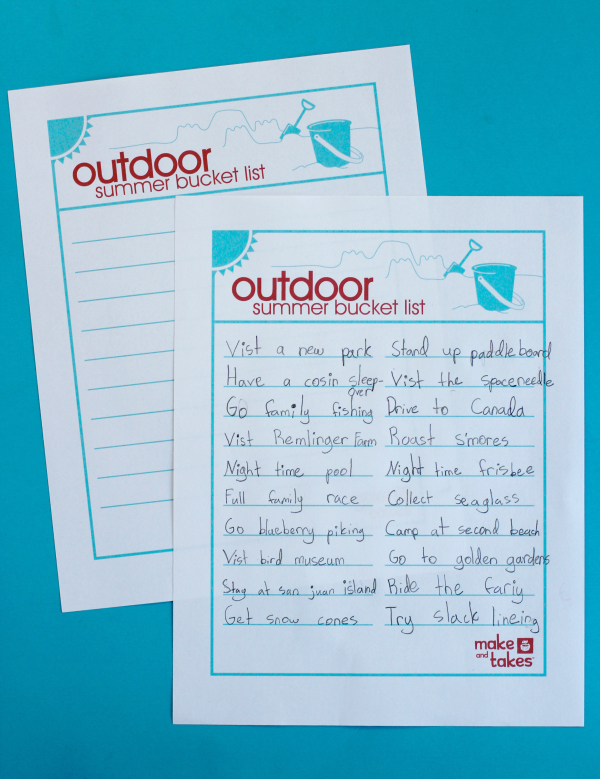 outdoor
summer bucket list
outdoor
summer bucket list
Vist a new park
Have a cosin sleep-
over
Go family fishing
Vist Remlinger Farm
Night time pool
Full family race
Go blueberry piking
Vist bird museum
Stay at san juan island
Get snow cones
Stand up paddleboard
Vist the spaceneedle
Drive to Canada
Roast s'mores
Night time frisbee
Collect seaglass
Camp at second beach
Go to golden gardens
Ride the fariy
Try slack lineing
make
and
takes